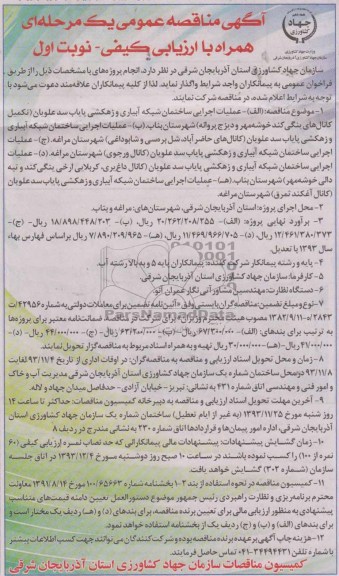 جهاد کشاورزی
آگهی مناقصه عمومی یک مرحله‌ای
همراه با ارزیابی کیفی- نوبت اول
سازمان جهاد کشاورزی استان آذربایجان شرقی در نظر دارد، انجام پروژه‌های با مشخصات ذیل را از طریق
فراخوان عمومی به پیمانکاران واجد شرایط واگذار نماید. لذا از کلیه پیمانکاران علاقه‌مند دعوت می‌شود با
توجه به شرایط اعلام شده، در مناقصه شرکت نمایند.
۱- موضوع مناقصه: (الف)- عملیات اجرایی ساختمان شبکه آبیاری و زهکشی پایاب سد علویان (تکمیل
کانال‌های ینگی کند خوشه‌مهر و دیزج پروانه) شهرستان بناب. (ب)- عملیات اجرایی ساختمان شبکه آبیاری
و زهکشی پایاب سد علویان (کانال‌های حاضرآباد، شل برسی و شایوداغی) شهرستان مراغه. (ج)- عملیات
اجرایی ساختمان شبکه آبیاری و زهکشی پایاب سد علویان (کانال ورجوی) شهرستان مراغه. (د)- عملیات
اجرایی ساختمان شبکه آبیاری و زهکشی پایاب سد علویان (کانال داغ بری، کربلایی ارخی ینگی کند و تپه
دالی خوشه‌مهر) شهرستان بناب. (هـ)- عملیات اجرایی ساختمان شبکه آبیاری و زهکشی پایاب سد علویان
(کانال آغکند تمرق) شهرستان مراغه.
۲- محل اجرای پروژه: استان آذربایجان شرقی، شهرستان‌های: مراغه و بناب.
۳- برآورد نهایی پروژه: (الف)- ۲۰/۲۶۲/۲۰۸/۲۵۵ ریال، (ب)- ۱۸/۸۹۸/۲۴۸/۳۰۳ ریال، (ج)-
۱۲/۴۶۱/۳۸۰/۳۷۳ ریال، (د)- ۱۱/۴۶۹/۹۶۶/۷۰۵ ریال، (هـ)- ۷/۸۹۰/۳۰۹/۹۶۵ ریال براساس فهارس بهاء
سال ۱۳۹۳ با تعدیل.
۴- پایه و رشته پیمانکار شرکت کننده: پیمانکاران پایه ۵ و به بالا رشته آب.
۵- کارفرما: سازمان جهاد کشاورزی استان آذربایجان شرقی.
۶- دستگاه نظارت: مهندسین مشاور آبی نگار عمران آتو.
۷- نوع و مبلغ تضمین: مناقصه‌گران بایستی وفق «آیین‌نامه تضمین برای معاملات دولتی به شماره ۴۲۹۵۶/ت
به ترتیب برای بندهای (الف)- ۶۷/۳۰۰/۰۰۰ ریال، (ب)- ۶۳/۲۰۰/۰۰۰ ریال، (ج)- ۴۴/۰۰۰/۰۰۰ ریال، (د)-
۴۱/۰۰۰/۰۰۰ ریال، (هـ)- ۳۰/۰۰۰/۰۰۰ ریال تهیه و به همراه اسناد مربوط به مناقصه‌گزار تحویل نمایند.
۸- زمان و محل تحویل اسناد ارزیابی و مناقصه به مناقصه‌گران: در اوقات اداری از تاریخ ۹۳/۱۱/۴ لغایت
۹۳/۱۱/۸ در محل ساختمان شماره یک سازمان جهاد کشاورزی استان آذربایجان شرقی مدیریت آب و خاک
و امور فنی و مهندسی اتاق شماره ۴۳۱ به نشانی: تبریز- خیابان آزادی- حدفاصل میدان جهاد و لاله.
۹- آخرین مهلت تحویل اسناد ارزیابی و مناقصه به دبیرخانه کمیسیون مناقصات: حداکثر تا ساعت ۱۴
روز شنبه مورخ ۱۳۹۳/۱۱/۲۵ (به غیر از ایام تعطیل) ساختمان شماره یک سازمان جهاد کشاورزی استان
آذربایجان شرقی، اداره امور پیمان‌ها و قراردادها اتاق شماره ۲۳۰ به نشانی مندرج در ردیف ۸
۱۰- زمان گشایش پیشنهادات: پیشنهادات مالی پیمانکارانی که حد نصاب نمره ارزیابی کیفی (۶۰
نمره از ۱۰۰) را کسب نموده باشند در ساعت ۱۰ صبح روز دوشنبه مورخ ۱۳۹۳/۱۲/۴ در اتاق جلسه
سازمان (شماره ۳۰۲) گشایش خواهد یافت.
۱۱- کمیسیون مناقصه در نحوه استفاده از بند ۲-۱۰ بخشنامه شماره ۱۰۰/۶۵۶۶۳ مورخ ۱۳۹۱/۸/۱۴ معاونت
محترم برنامه‌ریزی و نظارت راهبردی رئیس جمهور موضوع دستورالعمل تعیین دامنه قیمت‌های متناسب
پیشنهادی به منظور ارزیابی مالی برای تعیین برنده مناقصه، برای بندهای (د) و (هـ) ردیف یک مختار است و
برای بندهای (الف) و (ب) و (ج) ردیف یک از بخشنامه استفاده خواهد نمود.
۱۲- هزینه چاپ آگهی برعهده برنده مناقصه بوده و شرکت‌کنندگان می‌توانند جهت کسب اطلاعات بیشتر
با شماره تلفن ۳۴۴۹۴۴۳۱-۰۴۱ تماس حاصل فرمایند.
کمیسیون مناقصات سازمان جهاد کشاورزی استان آذربایجان شرقی